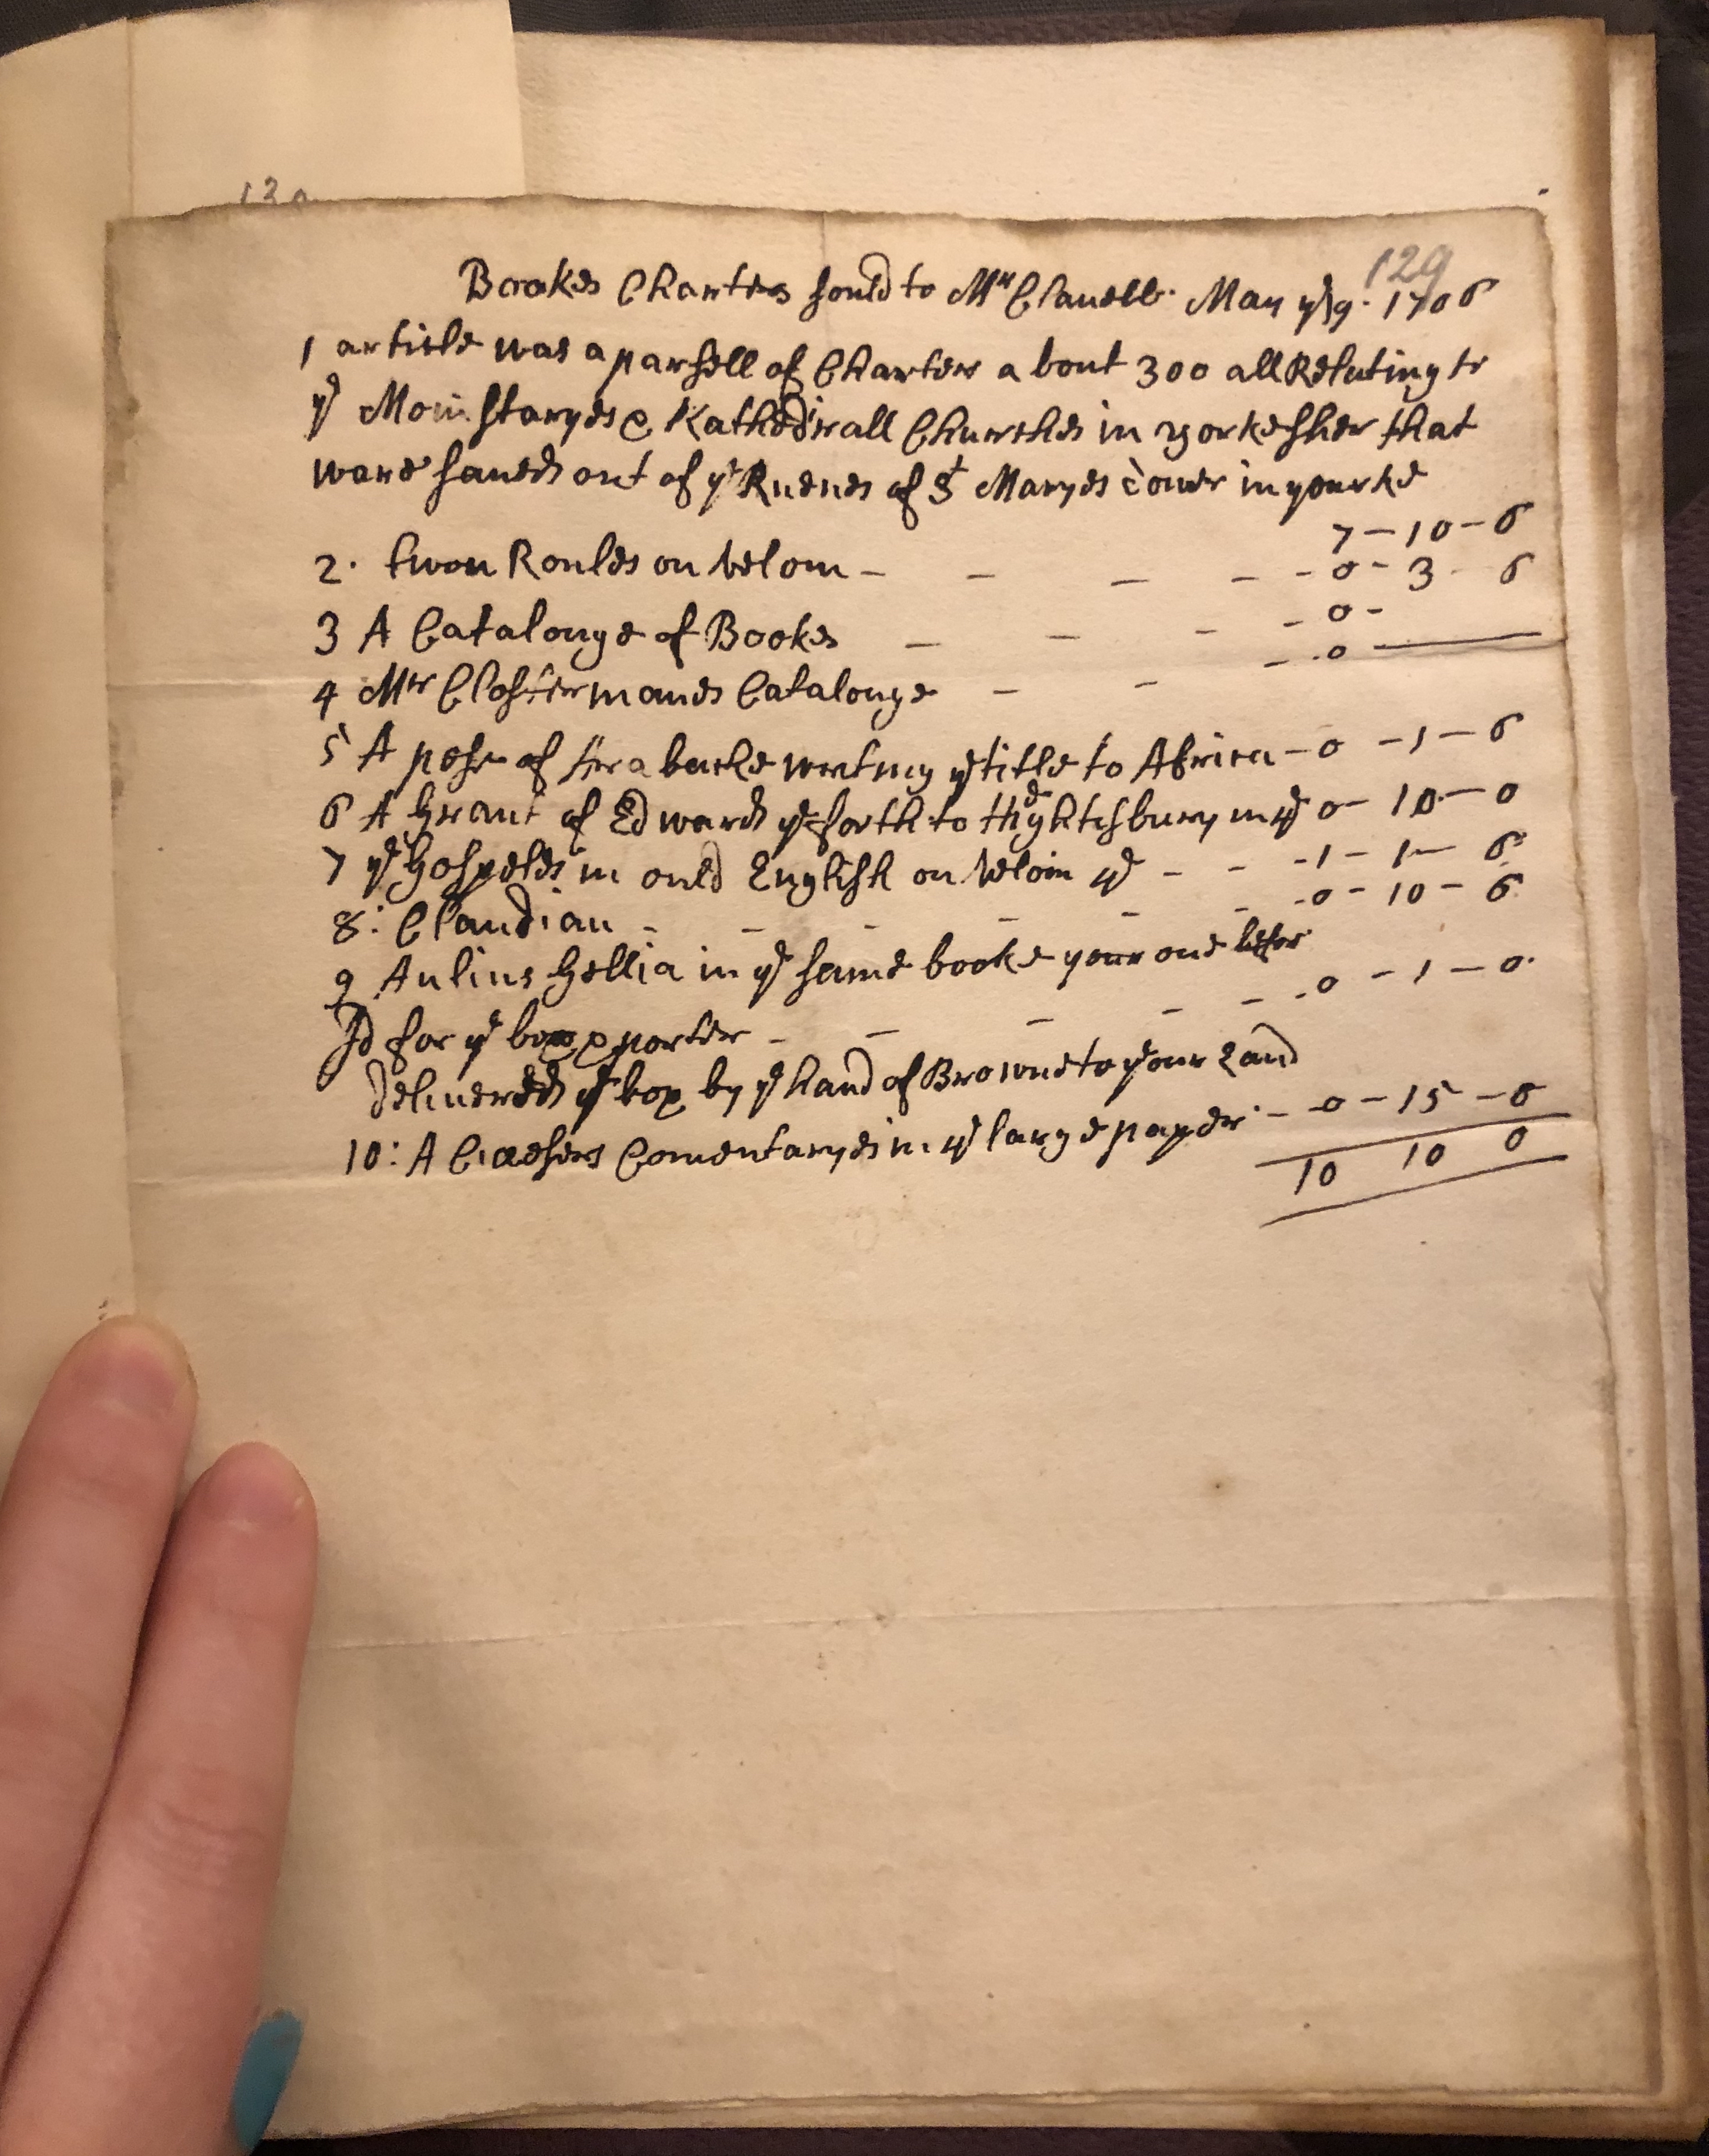 129
Bookes Charters sould to Mr Clauell. May ye 9. 1706
1 article was a parsell of Charter a bout 300 all Relating to
ye Monstaryes & Kathedrall Churches in yorkesher that
ware saued out of ye Ruenes of St Maryes towr in yourke
7 - 10 - 6
2. twou Roules on velom - - - - - 0 - 3 - 6
3 A Catalouge of Bookes - - - - 0 -
4 Mr Clostermanes Catalouge - - - 0
5 A pese of ye title to Africa - 0 - 1 - 6
6 A Grant of Edward ye forth to Hightesbury 0 - 10 - 0
7 ye Gospeles in ould English on velom ye - - 1 - 1 - 6
8: Claudian - - - - - - 0 - 10 - 6
9 Aulius Gellia in ye same booke your one letter
pd for ye box & porter - - - - - 0 - 1 - 0
deliuered ye box by ye hand of Browne to your Land
10: A Ciaesers Comentaryes in ye large paper - 0 - 15 - 0
10 10 0